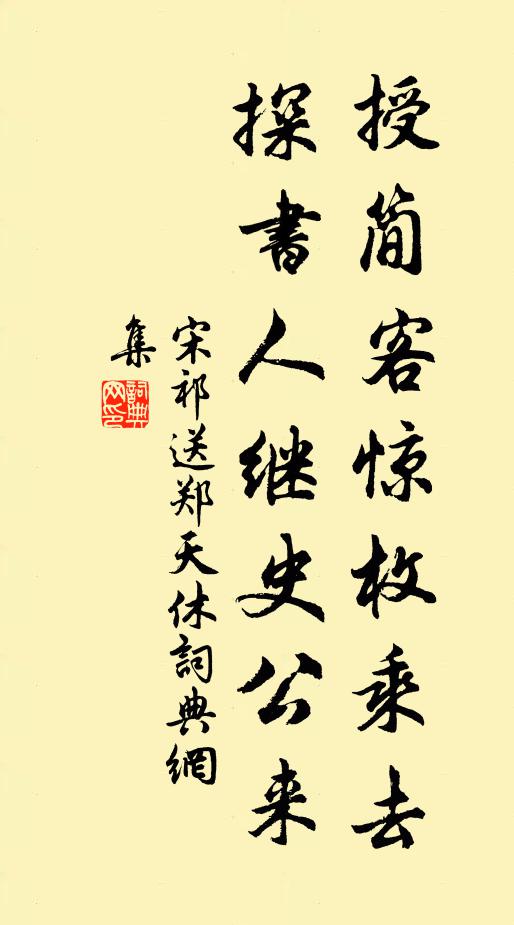 授简客惊枚乘去
探書人继史公来
宋祁送郑天休詞典網
集
詞典
网印